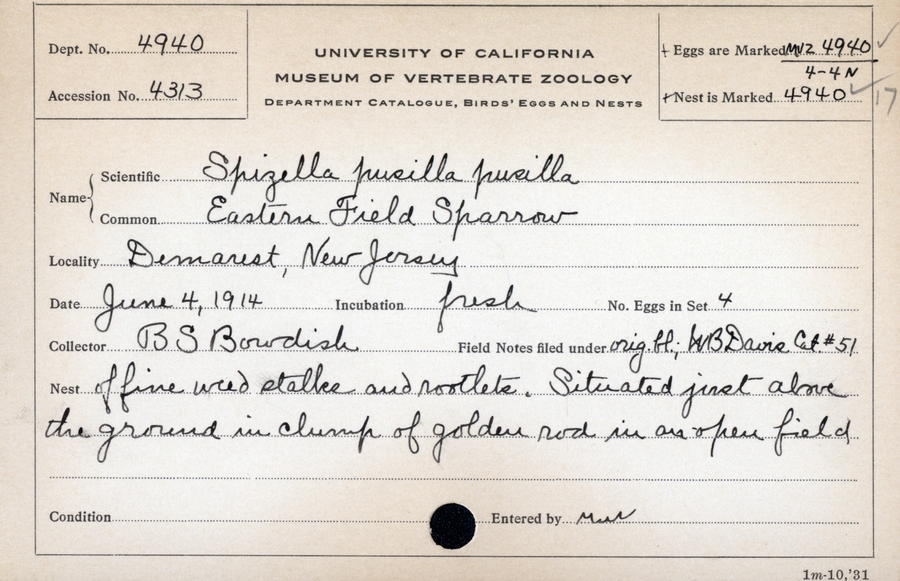 Dept. No. 4940
Accession No. 4313
UNIVERSITY OF CALIFORNIA
MUSEUM OF VERTEBRATE ZOOLOGY
DEPARTMENT CATALOGUE, BIRDS' EGGS AND NESTS
+ Eggs are Marked MVZ 4940 ✓
4-4 N
+ Nest is Marked 4940 ✓ 17
Name { Scientific Spizella pusilla pusilla
Common Eastern Field Sparrow
Locality Demarest, New Jersey
Date June 4, 1914 Incubation fresh No. Eggs in Set 4
Collector B S Bowdish Field Notes filed under orig. bl; WB Davis Cat. #51
Nest of fine weed stalks and rootlets. Situated just above
the ground in clump of golden rod in an open field
Condition Entered by
1m-10,'31